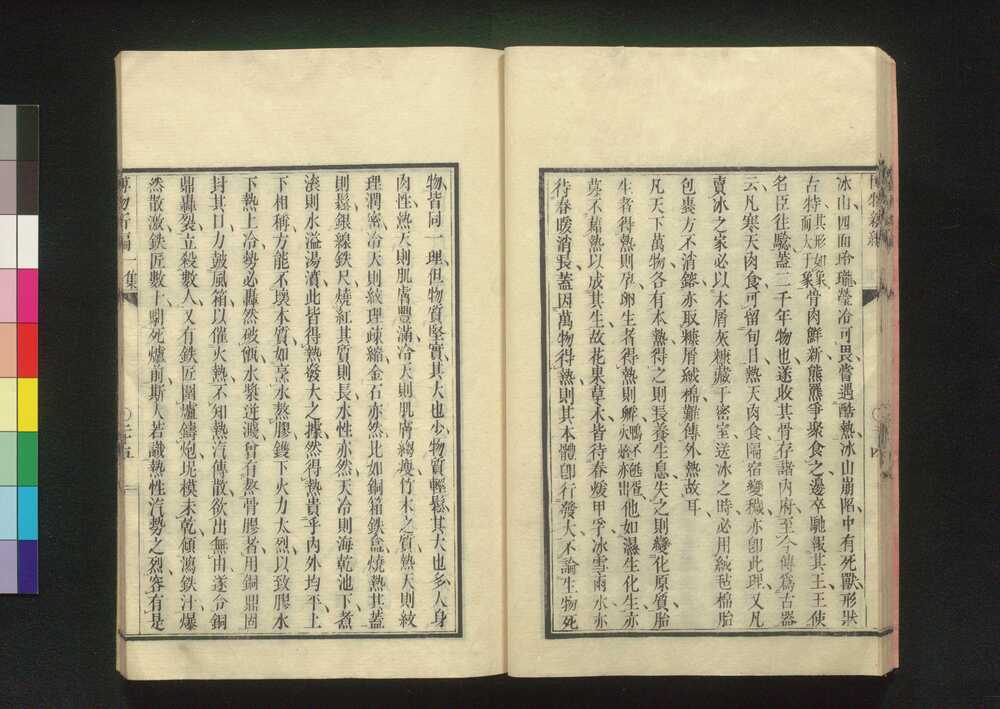 冰山四面玲瓏瑩冷可畏嘗遇酷熱冰山崩陷中有死獸形狀
古特其形如象而大于象骨肉鮮新熊羆爭聚食之邊卒馳報其王王使
名臣往驗蓋二千年物也遂收其骨存諸內府至今傳爲古器
云凡寒天肉食可留旬日熱天肉食隔宿變穢亦卽此理又凡
賣冰之家必以木屑灰糠藏于密室送冰之時必用絨毡棉胎
包裹方不消鎔亦取糠屑絨棉難傳外熱故耳
凡天下萬物各有本熱得之則長養生息失之則變化原質胎
生者得熱則孕卵生者得熱則孵鴨不抱蛋火焙亦出他如濕生化生亦
莫不藉熱以成其生故花果草木皆待春煖甲孚冰雪雨水亦
待春暖消長蓋因萬物得熱則其本體卽行發大不論生物死
物皆同一理但物質堅實其大也少物質輕鬆其大也多人身
肉性熱天則肌膚豐滿冷天則肌膚縐瘦竹木之質熱天則紋
理潤密冷天則紋理疎縮金石亦然比如銅箱鉄盒燒熱其蓋
則鬆銀線鉄尺燒紅其質則長水性亦然天冷則海乾池下煮
滾則水溢湯濆此皆得熱發大之據然得熱貴乎內外均平上
下相稱方能不壞本質如烹水熬膠鑊下火力太烈以致膠水
下熱上冷勢必轟然破傾水漿迸濺曾有熬骨膠者用銅鼎固
封其口力鼓風箱以催火熱不知熱汽傳散欲出無由遂令銅
鼎轟裂立殺數人又有鉄匠圍爐鑄炮坭模未乾傾瀉鉄汁爆
然散激鉄匠數十關死爐前斯人若識熱性汽勢之烈容有是
博物新編一集